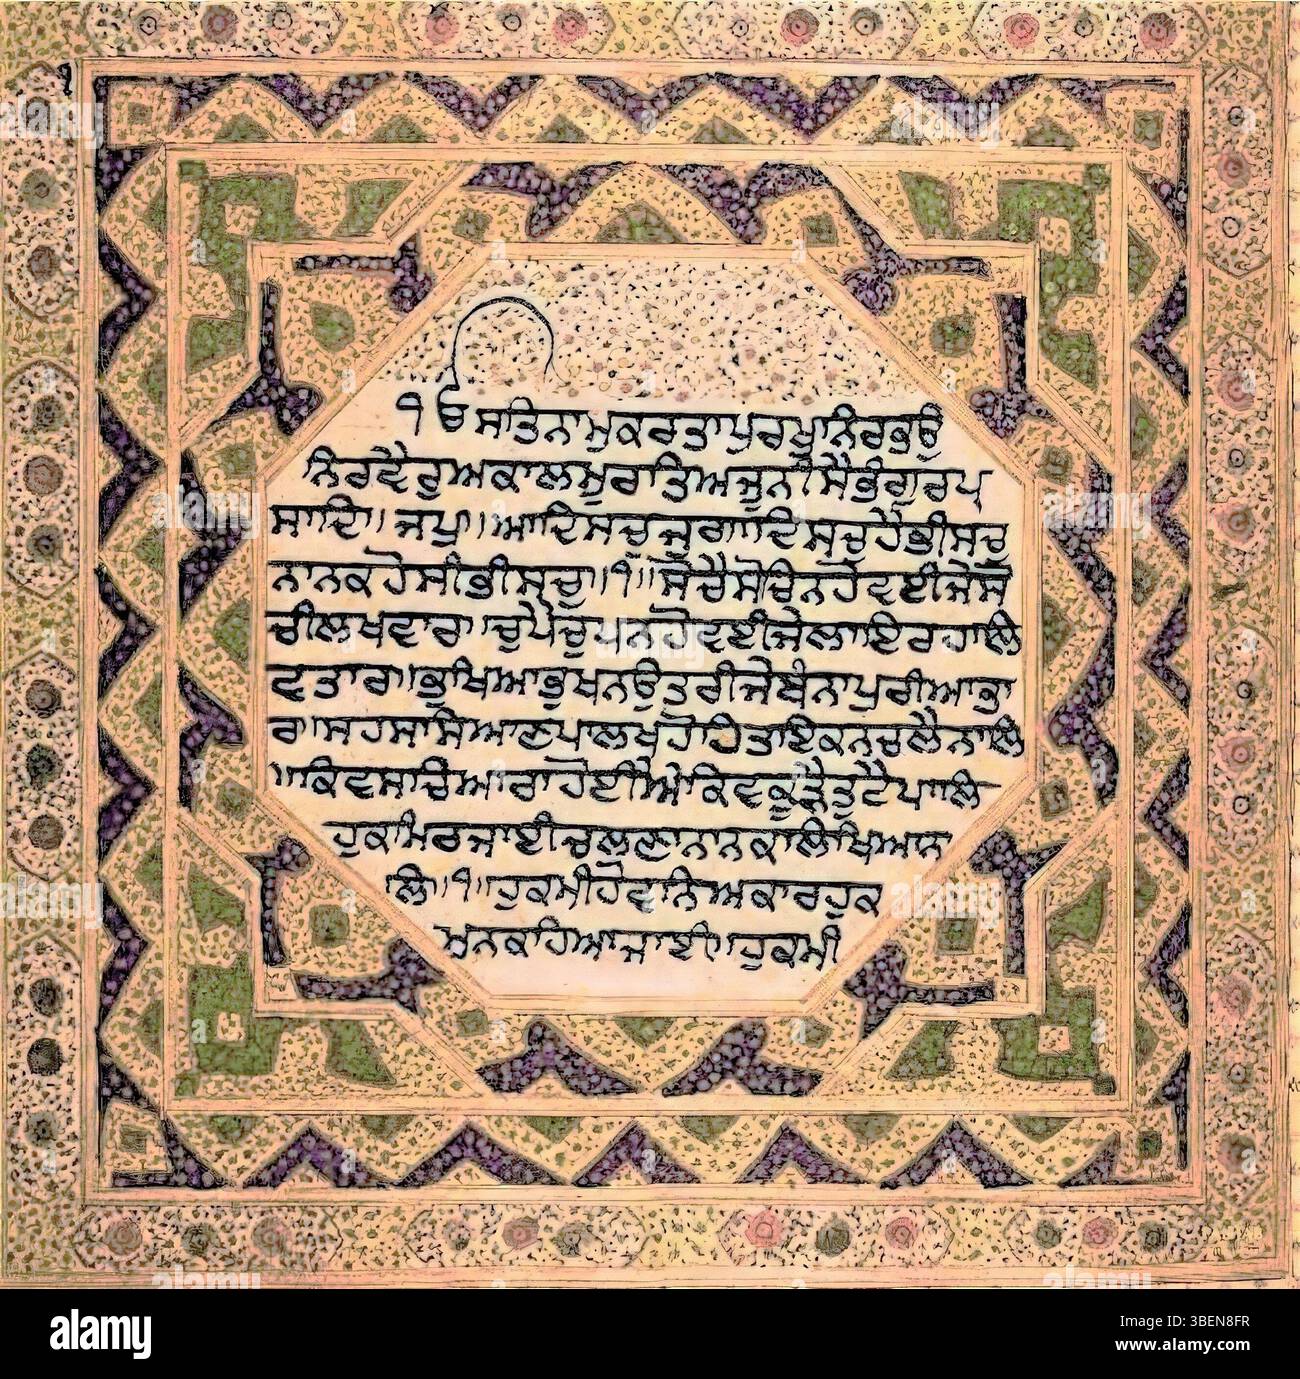 ੴਸਤਿਨਾਮੁਕਰਤਾਪੁਰਖੁਨਿਰਭਉ
ਨਿਰਵੈਰੁਅਕਾਲਮੂਰਤਿਅਜੂਨੀਸੈਭੰਗੁਰਪ੍ਰ
ਸਾਦਿ॥ਜਪੁ॥ਆਦਿਸਚੁਜੁਗਾਦਿਸਚੁਹੈਭੀਸਚੁ
ਨਾਨਕਹੋਸੀਭੀਸਚੁ॥੧॥ਸੋਚੈਸੋਚਿਨਹੋਵਈਜੇਸੋ
ਚੀਲਖਵਾਰ॥ਚੁਪੈਚੁਪਨਹੋਵਈਜੇਲਾਇਰਹਾਲਿ
ਵਤਾਰ॥ਭੁਖਿਆਭੁਖਨਉਤਰੀਜੇਬੰਨਾਪੁਰੀਆਭਾ
ਰ॥ਸਹਸਸਿਆਣਪਾਲਖਹੋਹਿਤਾਇਕਨਚਲੈਨਾਲਿ
॥ਕਿਵਸਚਿਆਰਾਹੋਈਐਕਿਵਕੂੜੈਤੁਟੈਪਾਲਿ
ਹੁਕਮਿਰਜਾਈਚਲਣਾਨਾਨਕਲਿਖਿਆਨਾ
ਲਿ॥੧॥ਹੁਕਮੀਹੋਵਨਿਅਕਾਰਹੁਕ
ਮੁਨਕਹਿਆਜਾਈ॥ਹੁਕਮੀ
alamy
Image ID: 3BEN8FR
www.alamy.com